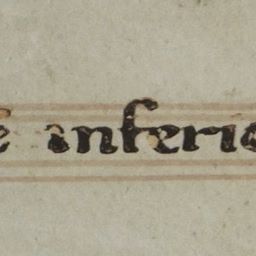 e inferio